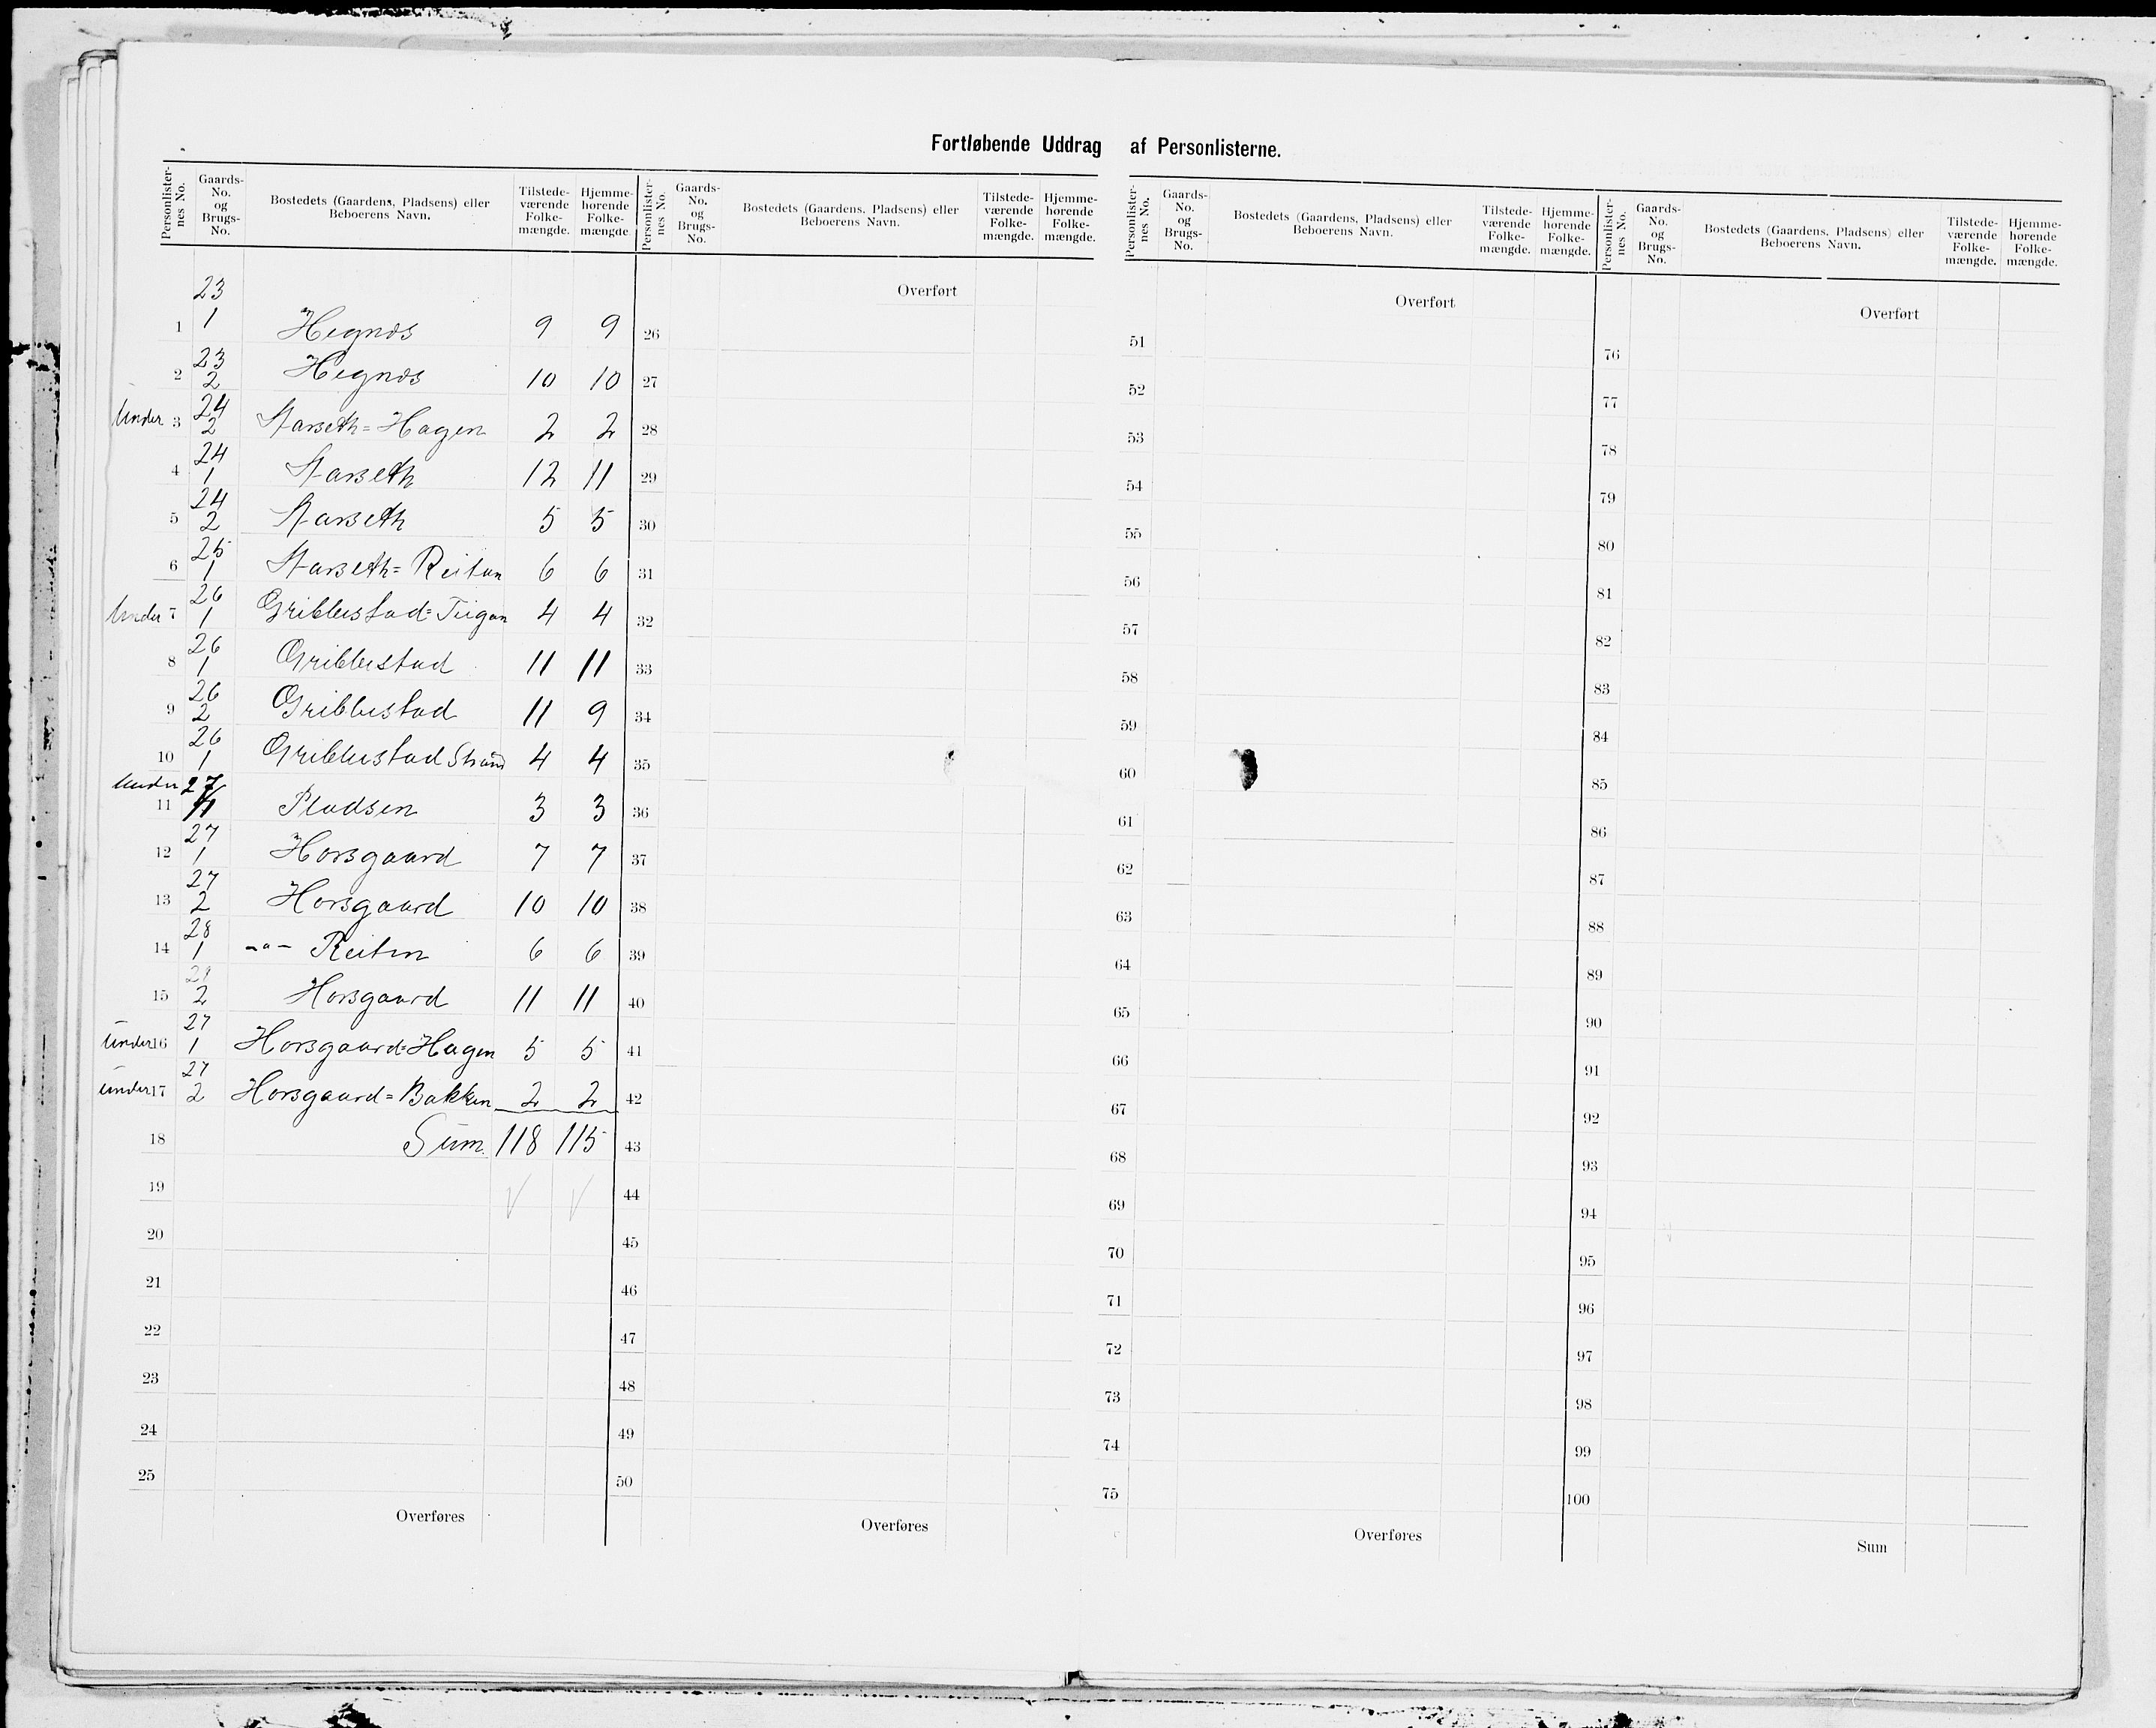 Fortløbende Uddrag af Personlisterne.
Personlister-nes No. | Gaards-No. og Brugs-No. | Bostedets (Gaardens, Pladsens) eller Beboerens Navn. | Tilstede-værende Folke-mængde. | Hjemme-hørende Folke-mængde
Personlister-nes No. | Gaards-No. og Brugs-No. | Bostedets (Gaardens, Pladsens) eller Beboerens Navn. | Tilstede-værende Folke-mængde. | Hjemme-hørende Folke-mængde.
Personlister-nes No. | Gaards-No. og Brugs-No. | Bostedets (Gaardens, Pladsens) eller Beboerens Navn. | Tilstede-værende Folke-mængde. | Hjemme-hørende Folke-mængde.
Personlister-nes No. | Gaards-No. og Brugs-No. | Bostedets (Gaardens, Pladsens) eller Beboerens Navn. | Tilstede-værende Folke-mængde. | Hjemme-hørende Folke-mængde.
1 23/1 Hegnæs 9 9
2 23/2 Hegnæs 10 10
Under 3 24/2 Aarseth=Hagen 2 2
4 24/1 Aarseth 12 11
5 24/2 Aarseth 5 5
6 25/1 Aarseth=Reitan 6 6
Under 7 26/1 Gribbestad=Teigan 4 4
8 26/1 Gribbestad 11 11
9 26/2 Gribbestad 11 9
10 26/1 Gribbestad Strand 4 4
Under 11 27/1 Pladsen 3 3
12 27/1 Horsgaard 7 7
13 27/2 Horsgaard 10 10
14 28/1 -"- Reiten 6 6
15 28/2 Horsgaard 11 11
Under 16 27/1 Horsgaard=Hagen 5 5
Under 17 27/2 Horsgaard=Bakken 2 2
18 Sum 118 115
19
20
21
22
23
24
25
Overføres
Overført
26
27
28
29
30
31
32
33
34
35
36
37
38
39
40
41
42
43
44
45
46
47
48
49
50
Overføres
Overført
51
52
53
54
55
56
57
58
59
60
61
62
63
64
65
66
67
68
69
70
71
72
73
74
75
Overføres
Overført
76
77
78
79
80
81
82
83
84
85
86
87
88
89
90
91
92
93
94
95
96
97
98
99
100
Sum